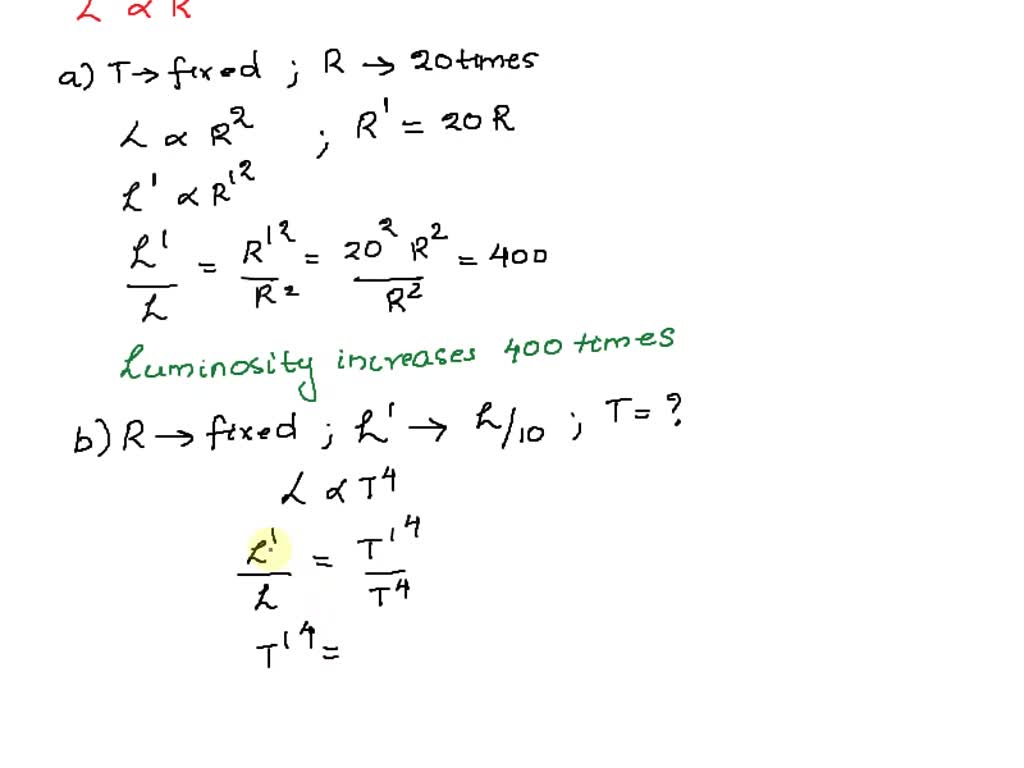 L ∝ R
a) T → fixed ; R → 20 times
L ∝ R² ; R' = 20 R
L' ∝ R'²
L'/L = R'²/R² = 20² R²/R² = 400
Luminosity increases 400 times
b) R → fixed ; L' → L/10 ; T = ?
L ∝ T⁴
L'/L = T'⁴/T⁴
T'⁴ =